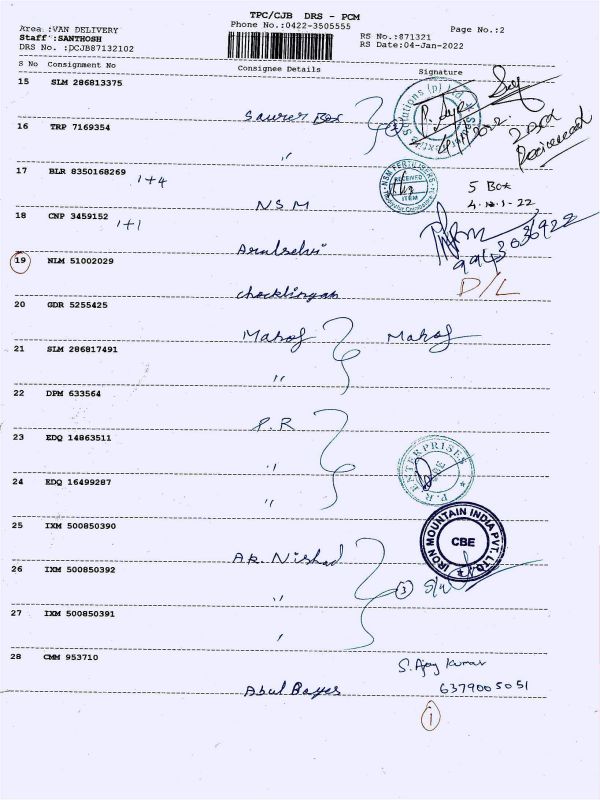 TPC/CJB DRS - PCM
Area :VAN DELIVERY
Phone No.:0422-3505555
Page No.:2
Staff :SANTHOSH
RS No.:871321
DRS No. :DCJB87132102
RS Date:04-Jan-2022
S No Consignment No Consignee Details Signature
15 SLM 286813375
Saurer Box
2 Box
Received
16 TRP 7169354
"
17 BLR 8350168269 1+4
NSM
NSM FERTILISERS
RECEIVED
ITEM
5 Box
4.1.22
18 CNP 3459152 1+1
Arulselvi
9943036922
19 NLM 51002029
chocklingam
D/L
20 GDR 5255425
Maroof Maroof
21 SLM 286817491
"
22 DPM 633564
P.R
23 EDQ 14863511
"
P.R ENTERPRISES
24 EDQ 16499287
"
25 IXM 500850390
AR. Nishad
IRON MOUNTAIN INDIA PVT. LTD.
CBE
26 IXM 500850392
"
3
27 IXM 500850391
"
28 CMM 953710
S. Ajay Kumar
Abul Bayes
6379005051
1